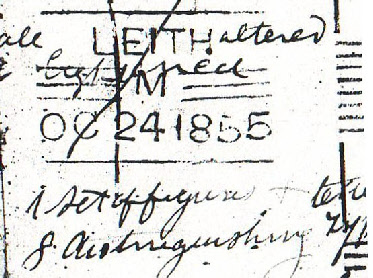 all LEITH altered
M
OC 24 1855
1 set of figures
8 distinguishing